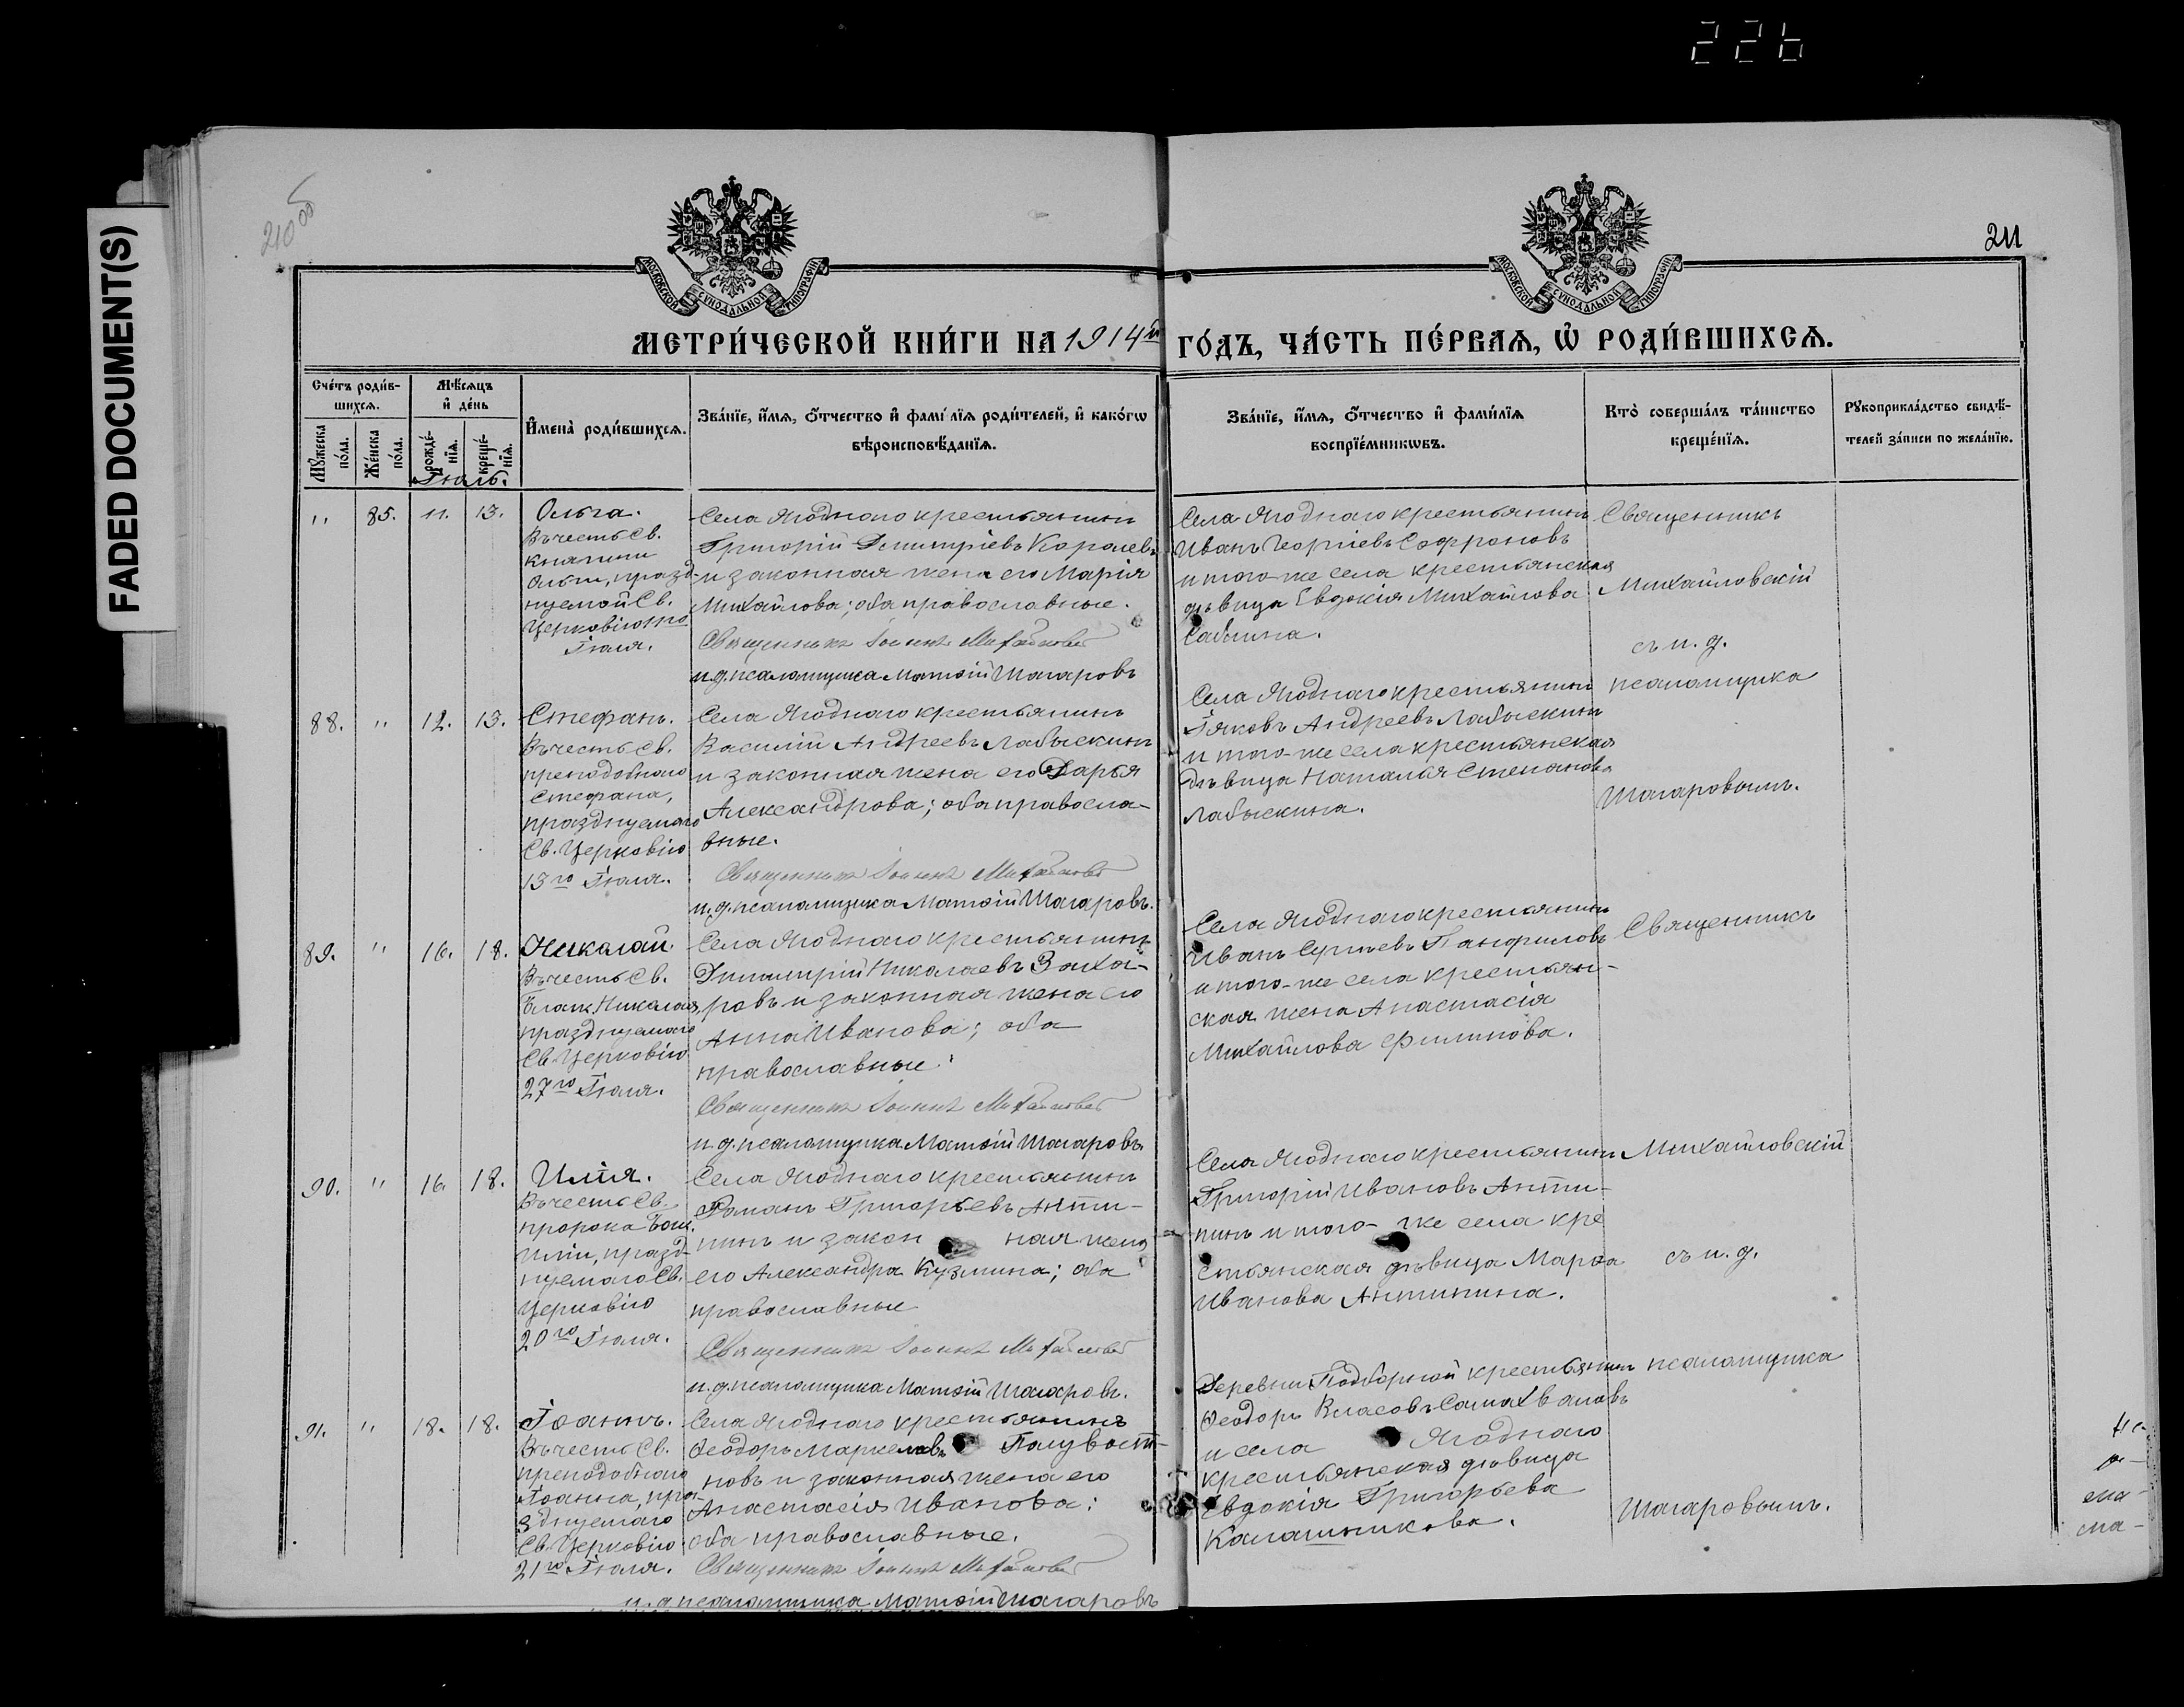 226
FADED DOCUMENT(S)
210 об
211
МОСКОВСКОЙ СУНОДАЛЬНОЙ ТИПОГРАФІИ
МОСКОВСКОЙ СУНОДАЛЬНОЙ ТИПОГРАФІИ
МЕТРИ́ЧЕСКОЙ КНИ́ГИ НА 1914й ГО́ДЪ, ЧА́СТЬ ПЕ́РВАЯ, Ѡ РОДИ́ВШИХСЯ.
Счетъ родив-
шихся.
Мѣсяцъ
и день
Мужеска
пола.
Женска
пола.
рожде-
нія.
креще-
нія.
Имена родившихся.
Званіе, имя, отчество и фамилія родителей, и какогѡ
вѣроисповѣданія.
Званіе, имя, отчество и фамилія
воспріемникѡвъ.
Кто совершалъ таинство
крещенія.
Рукоприкладство свидѣ-
телей записи по желанію.
Іюль.
" 85. 11. 13.
Ольга.
Въ честь Св.
княгини
Ольги, празд-
нуемой Св.
Церковію 11го
Іюля.
Села Ягоднаго крестьянинъ
Григорій Димитріевъ Королевъ
и законная жена его Марія
Михайлова; оба православные.
Священникъ Іоаннъ Михайловскій
и.д. псаломщика Матѳій Шагаровъ
Села Ягоднаго крестьянинъ
Иванъ Георгіевъ Софроновъ
и того-же села крестьянская
дѣвица Евдокія Михайлова
Сабынина.
Священникъ
Михайловскій
съ и.д.
псаломщика
Шагаровымъ.
88. " 12. 13.
Стефанъ.
Въ честь Св.
преподобнаго
Стефана,
празднуемаго
Св. Церковію
13го Іюля.
Села Ягоднаго крестьянинъ
Василій Андреевъ Лабыскинъ
и законная жена его Дарья
Александрова; оба правосла-
вные.
Священникъ Іоаннъ Михайловскій
и.д. псаломщика Матѳій Шагаровъ.
Села Ягоднаго крестьянинъ
Іяковъ Андреевъ Лабыскинъ
и того-же села крестьянская
дѣвица Наталья Степанова
Лабыскина.
89. " 16. 18.
Николай.
Въ честь Св.
Блаж. Николая,
празднуемаго
Св. Церковію
27го Іюля.
Села Ягоднаго крестьянинъ
Димитрій Николаевъ Заха-
ровъ и законная жена его
Анна Иванова; оба
православные.
Священникъ Іоаннъ Михайловскій
и.д. псаломщика Матѳій Шагаровъ
Села Ягоднаго крестьянинъ
Иванъ Сергѣевъ Панфиловъ
и того-же села крестьян-
ская жена Анастасія
Михайлова Филипова.
Священникъ
Михайловскій
съ и.д.
псаломщика
Шагаровымъ.
90. " 16. 18.
Илія.
Въ честь Св.
пророка Бож.
Иліи, празд-
нуемаго Св.
Церковію
20го Іюля.
Села Ягоднаго крестьянинъ
Романъ Григорьевъ Анти-
пинъ и закон ная жена
его Александра Кузмина; оба
православные
Священникъ Іоаннъ Михайловскій
и.д. псаломщика Матѳій Шагаровъ.
Села Ягоднаго крестьянинъ
Григорій Ивановъ Анти-
пинъ и того- же села кре
стьянская дѣвица Марѳа
Иванова Антипина.
91. " 18. 18.
Іоаннъ.
Въ честь Св.
преподобнаго
Іоанна, пра-
зднуемаго
Св. Церковію
21го Іюля.
Села Ягоднаго крестьянинъ
Ѳеодоръ Маркеловъ
новъ и законная жена его
Анастасія Иванова;
оба православные.
Священникъ Іоаннъ Михайловскій
и.д. псаломщика Матѳій Шагаровъ
Деревни Подборной крестьянинъ
Ѳеодоръ Власовъ Самохваловъ
и села Ягоднаго
крестьянская дѣвица
Евдокія Григорьева
Калашникова.